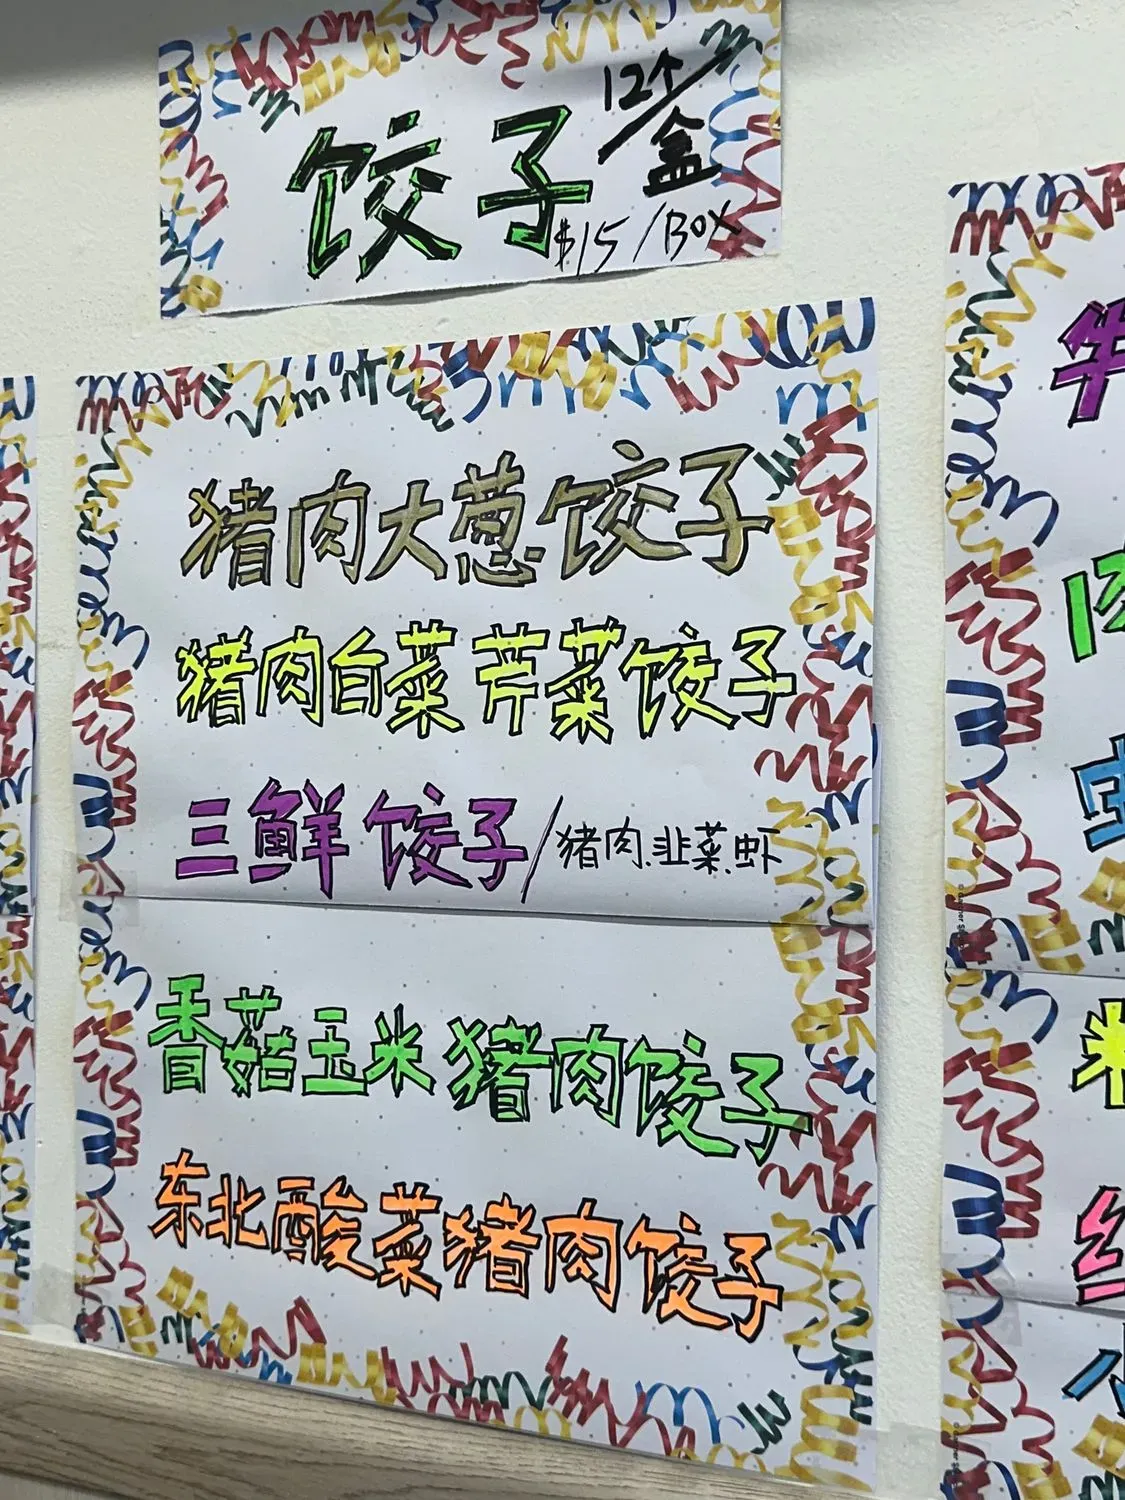 饺子
12个/盒
$15/BOX
猪肉大葱饺子
猪肉白菜 芹菜饺子
三鲜饺子/猪肉.韭菜.虾
香菇玉米猪肉饺子
东北酸菜猪肉饺子
牛
肉